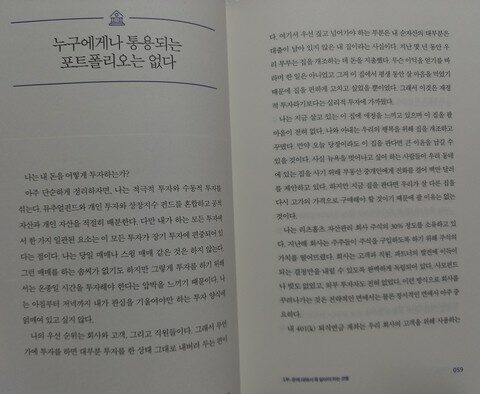 누구에게나 통용되는
포트폴리오는 없다
나는 내 돈을 어떻게 투자하는가?
아주 단순하게 정리하자면, 나는 적극적 투자와 수동적 투자를
섞는다. 뮤추얼펀드와 개인 투자와 상장지수 펀드를 혼합하고 공적
자산과 개인 자산을 적절히 배분한다. 다만 내가 하는 모든 투자에
서 한 가지 일관된 요소는 이 모두가 장기 투자에 편중되어 있
다는 점이다. 나는 당일 매매나 스윙 매매 같은 것은 하지 않는다.
그런 매매를 하는 솜씨가 없기도 하지만 그렇게 투자를 하기 위해
서는 온종일 시간을 투자해야 한다는 압박을 느끼기 때문이다. 나
는 아침부터 저녁까지 내가 관심을 기울여야만 하는 투자 양식에
얽매여 있고 싶지 않다.
나의 우선 순위는 회사와 고객, 그리고 직원들이다. 그래서 무언
가에 투자를 하면 대부분 투자를 한 상태 그대로 내버려 두는 편이
다. 여기서 우선 짚고 넘어가야 하는 부분은 내 순자산의 대부분은
대출이 남아 있지 않은 내 집이라는 사실이다. 지난 몇 년 동안 우
리 부부는 집을 개조하는 데 돈을 지출했다. 무슨 이익을 얻기를 바
라며 한 일은 아니었고 그저 이 집에서 평생 동안 살 마음을 먹었기
때문에 집을 편하게 고치고 싶었을 뿐이었다. 그래서 이것은 재정
적 투자라기보다는 심리적 투자에 가까웠다.
나는 지금 살고 있는 이 집에 애정을 느끼고 있으며 이 집을 팔
마음이 전혀 없다. 나와 아내는 우리의 행복을 위해 집을 개조하고
꾸몄다. 만약 오늘 당장이라도 이 집을 판다면 큰 이윤을 남길 수
있을 것이다. 사실 뉴욕을 벗어나고 싶어 하는 사람들이 우리 동네
에 있는 집을 사기 위해 부동산 중개인에게 전화를 걸어 백만 달러
를 제안하고 있다. 하지만 지금 집을 판다면 우리가 살 다른 집을
다시 고가의 가격으로 구매해야 할 것이기 때문에 팔 이유는 없는
것이다.
나는 리츠홀츠 자산관리 회사 주식의 30% 정도를 소유하고 있
다. 지난해 회사는 주주들이 주식을 구입하도록 하기 위해 주식의
가치를 떨어뜨렸다. 회사는 고객과 직원, 파트너의 발전에 이득이
되는 결정만을 내릴 수 있도록 완벽하게 독립되어 있다. 사모펀드
나 빚도 없었고, 외부 투자자도 전혀 없었다. 이런 방식으로 회사를
꾸려나가는 것은 전략적인 면에서는 물론 정서적인 면에서 아주 중
요하다.
내 401(k) 퇴직연금 계좌는 우리 회사의 고객을 위해 사용하는
059